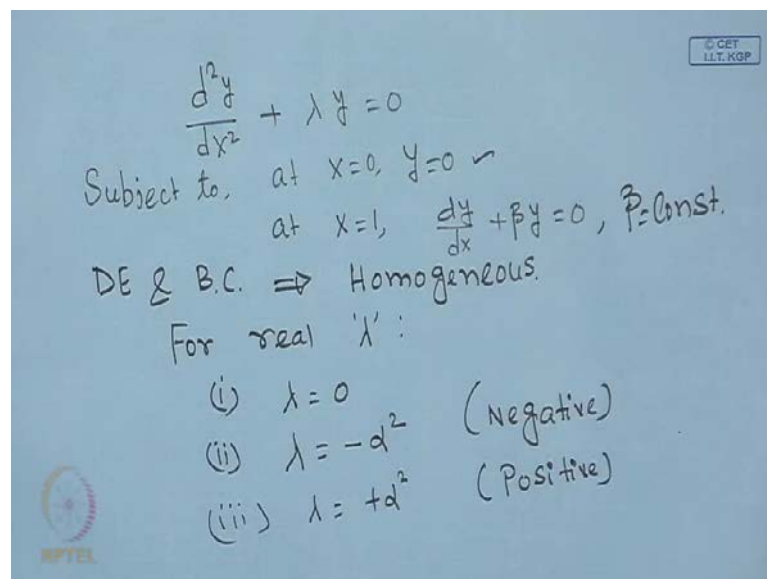 © CET
I.I.T. KGP
d²y/dx² + λy = 0
Subject to, at x=0, y=0
at x=1, dy/dx + βy = 0, β=Const.
DE & B.C. ⇒ Homogeneous.
For real 'λ' :
(i) λ = 0
(ii) λ = -α² (Negative)
(iii) λ = +α² (Positive)
NPTEL